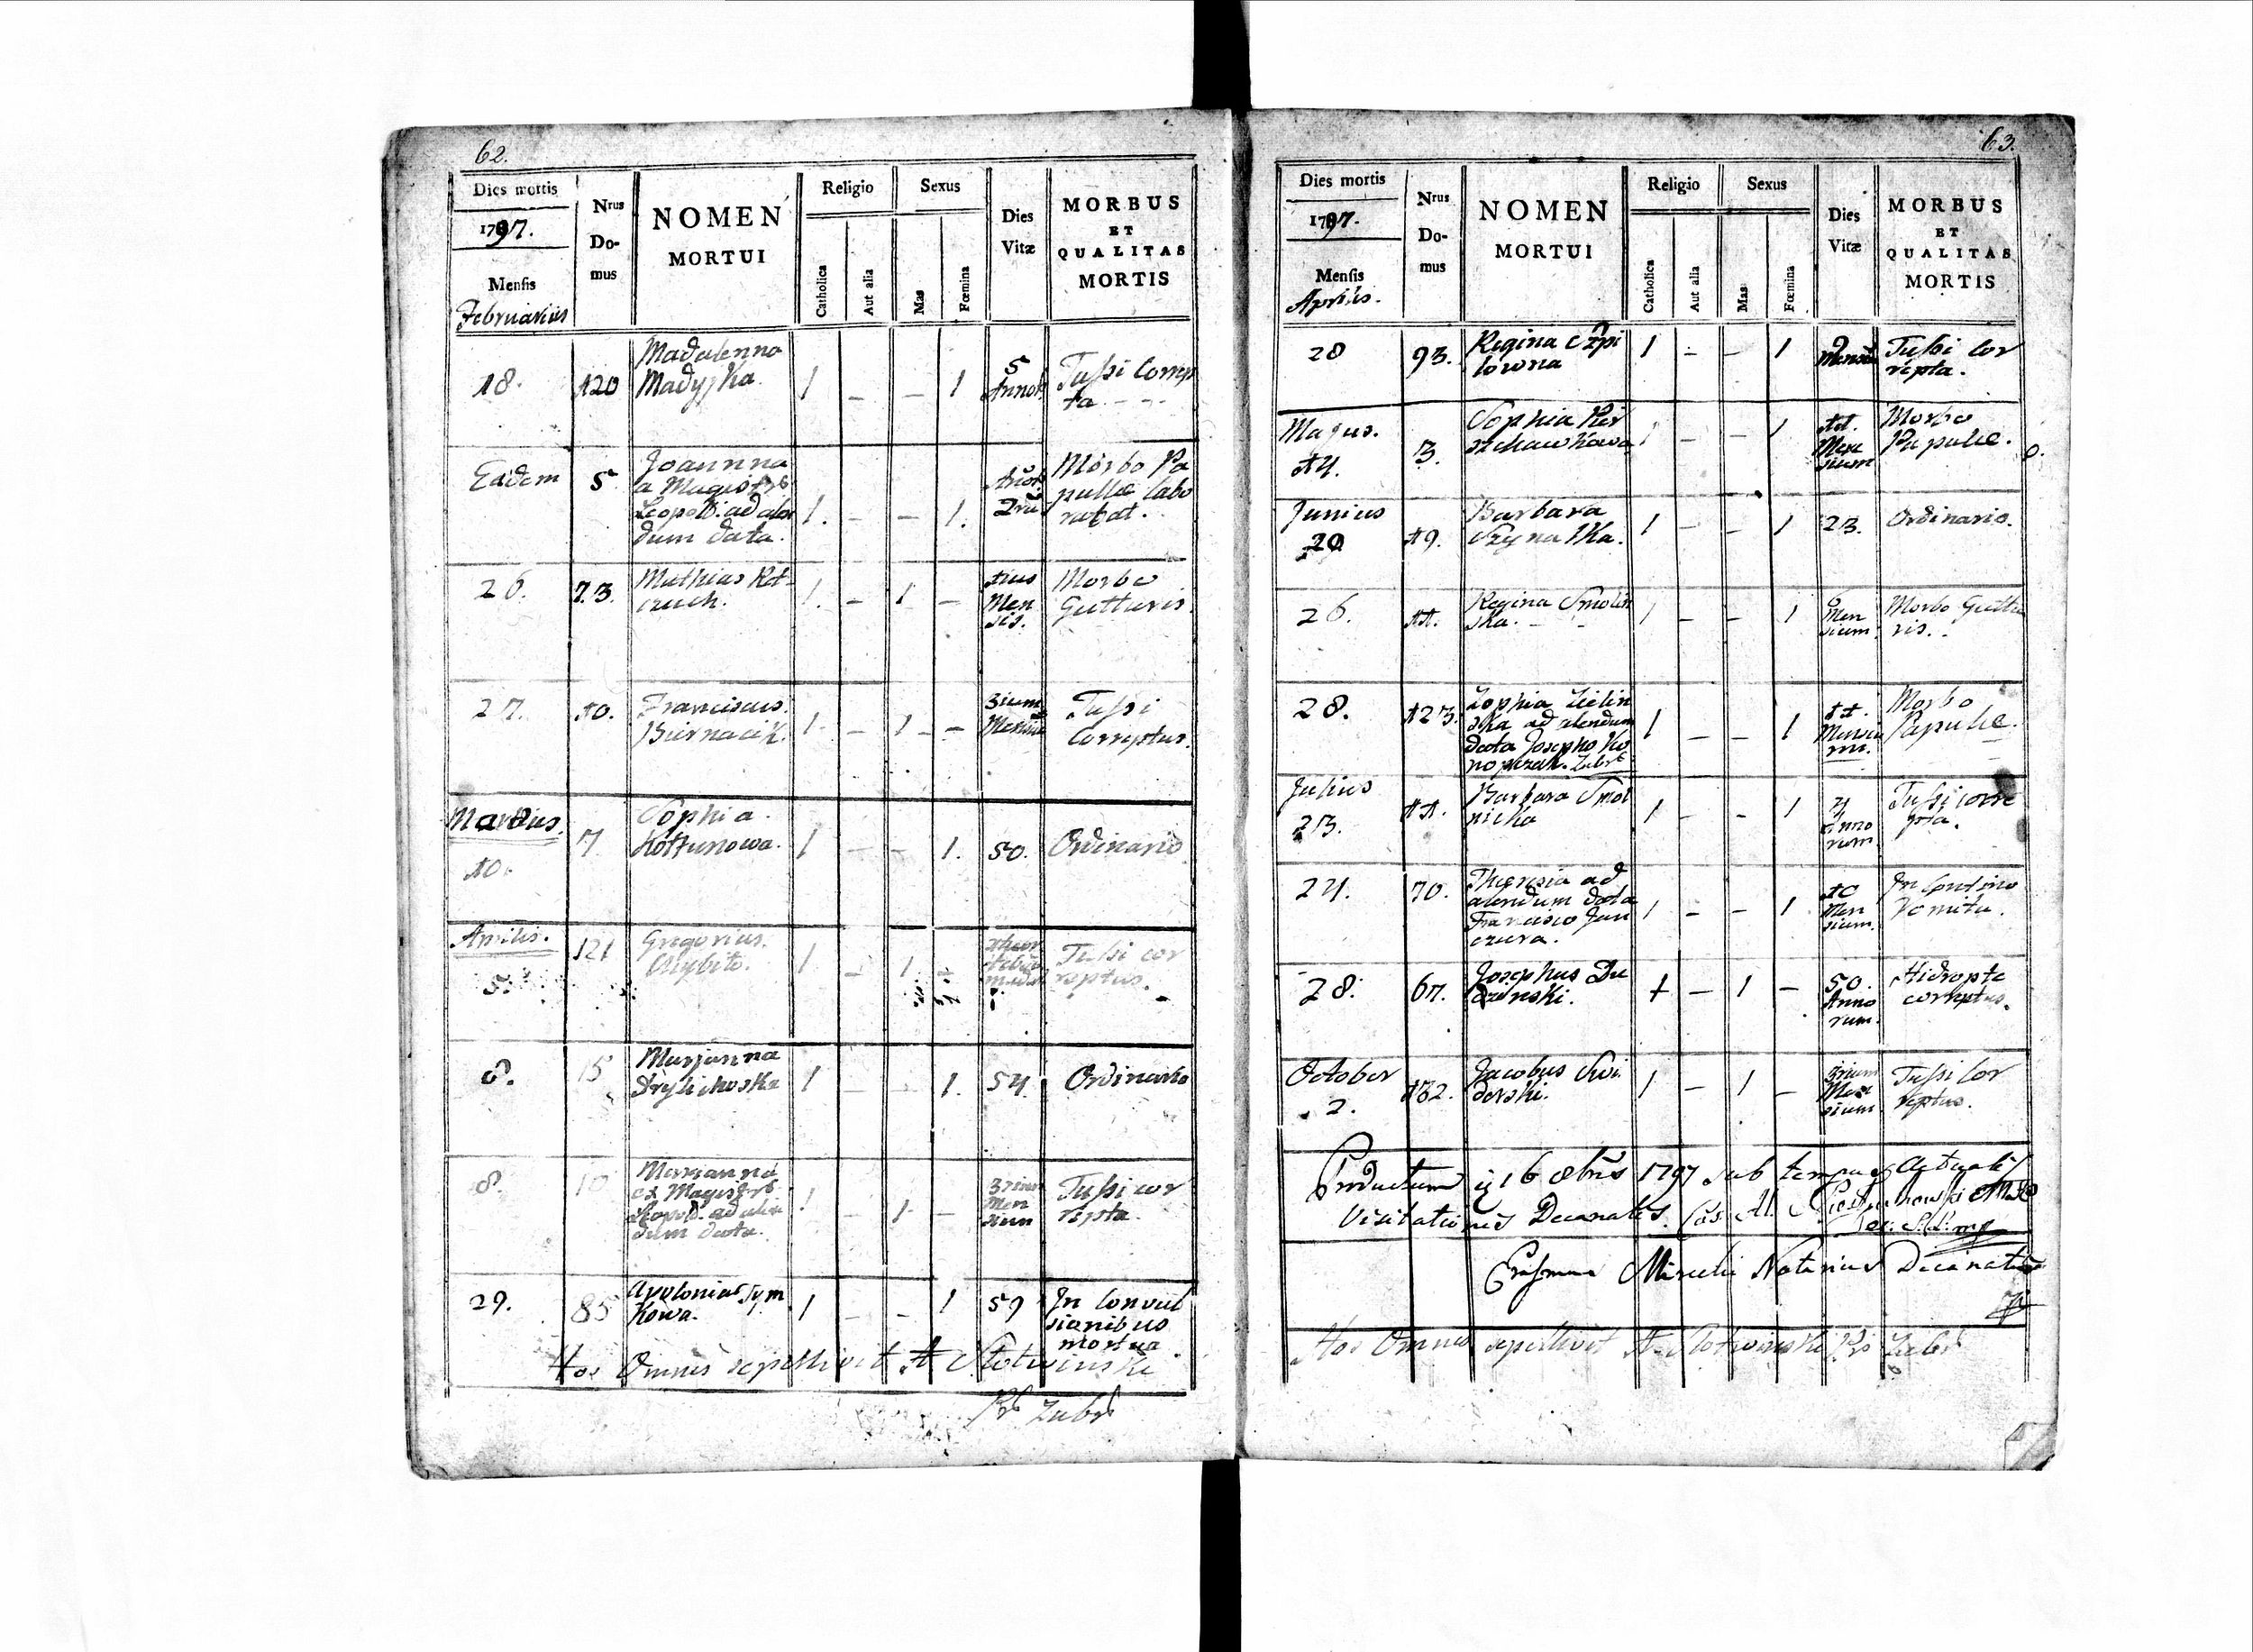 62.
Dies mortis
1797.
Mensis
Februarius
Nrus
Do-
mus
NOMEN
MORTUI
Religio
Catholica
Aut alia
Sexus
Mas
Fœmina
Dies
Vitæ
MORBUS
ET
QUALITAS
MORTIS
18.
120
Madalenna
Madyska.
1
–
–
1
5
Annor.
Tussi Correp
ta
Eadem
5
Joannna
a Magistrs
Leopold. ad alen
dum data.
1.
–
–
1.
2rū
Morbo Pa
pullæ labo
rabat.
26.
73.
Mathias Kot-
czuch.
1.
–
1
–
1ius
Men
sis.
Morbo
Gutturis.
27.
10.
Franciscus
Biernacik.
1.
–
1
–
3ium
Mensiū
Tussi
Correptus.
Martius.
10.
7
Sophia
Kottunowa.
1
–
–
1.
50.
Ordinario
Aprilis.
5.
121
Gregorius
1
–
1
Tussi cor
reptus.
8.
15
Marjanna
Drylichoska
1
–
–
1.
54.
Ordinario
8.
10
Marianna
ex Magistrs
Leopold. ad alen
dum data.
1
–
1
–
3rium
Men
sium
Tussi cor
repta.
29.
85
Apolonia Szym
kowa.
1
–
–
1
59
In Convul
sionibus
mortua.
Hos Omnes sepellivit A Słotwinski
Zubr
63.
Dies mortis
1797.
Mensis
Aprilis.
Nrus
Do-
mus
NOMEN
MORTUI
Religio
Catholica
Aut alia
Sexus
Mas
Fœmina
Dies
Vitæ
MORBUS
ET
QUALITAS
MORTIS
28
93.
Regina Szpi
lorona
1
–
–
1
9
Mensiū
Tussi Cor
repta.
Majus.
14.
3.
Sophia Kir
1
–
–
1
11.
Men
sium
Morbo
Papulæ.
Junius
20
19.
Barbara
1
–
–
1
23.
Ordinario.
26.
11.
Regina Smolin
ska.
1
–
–
1
6
Men
sium.
Morbo Guttu
ris.
28.
123.
Zophia Zielin
ska ad alendum
data Josepho Ko
nopczak.
1
–
–
1
11.
Mensiu
m.
Morbo
Papulæ.
Julius
23.
11.
Barbara Smol
nicka
1
–
–
1
4
Anno
rum.
Tussi corre
pta.
24.
70.
Theresia ad
alendum data
Francisco Jan
czura.
1
–
–
1
10
Men
sium.
In Continuo
Vomitu.
28.
67.
Josephus Du
dzinski.
1
–
1
–
50.
Anno
rum.
Hidropte
correptus.
October
2.
132.
Jacobus Swi
derski.
1
–
1
–
3rium
Men
sium
Tussi Cor
reptus.
Productum 16 8bris 1797 sub tempus Actualis
Visitationis Decanalis
Erasmus Notarius Decanatus
Hos Omnes sepellivit A Słotwinski Zubr